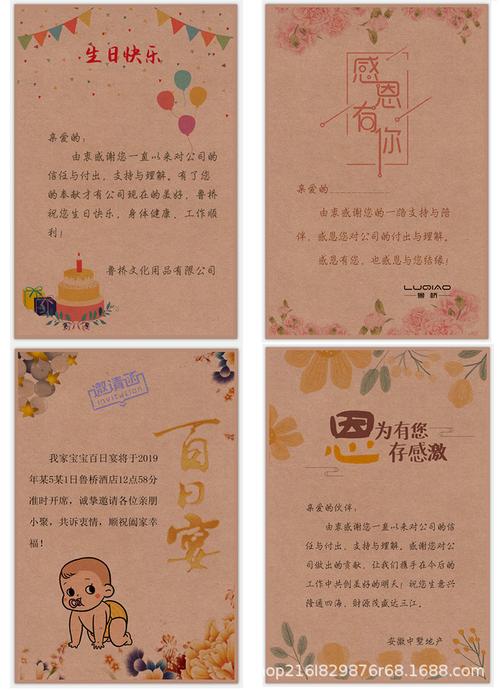 生日快乐
亲爱的:
由衷感谢您一直以来对公司的
信任与付出,支持与理解。有了您
的奉献才有公司现在的美好,鲁桥
祝您生日快乐,身体健康,工作顺
利!
鲁桥文化用品有限公司
感恩有你
亲爱的
由衷感谢您的一路支持与陪
伴,感恩您对公司的付出与理解。
感恩有您,也感恩与您结缘!
LUQIAO
鲁桥
邀请函
Invitation
百日宴
我家宝宝百日宴将于2019
年5某1日鲁桥酒店12点58分
准时开席,诚挚邀请各位亲朋
小聚,共诉衷情,顺祝阖家幸
福!
恩为有您
存感激
亲爱的伙伴:
由衷感谢您一直以来对公司的信
任与付出,支持与理解。感谢您对公
司做出的贡献,让我们携手在今后的
工作中共创美好的明天!祝您生意兴
隆通四海,财源茂盛达三江。
安徽中墅地产
op216l829876r68.1688.com